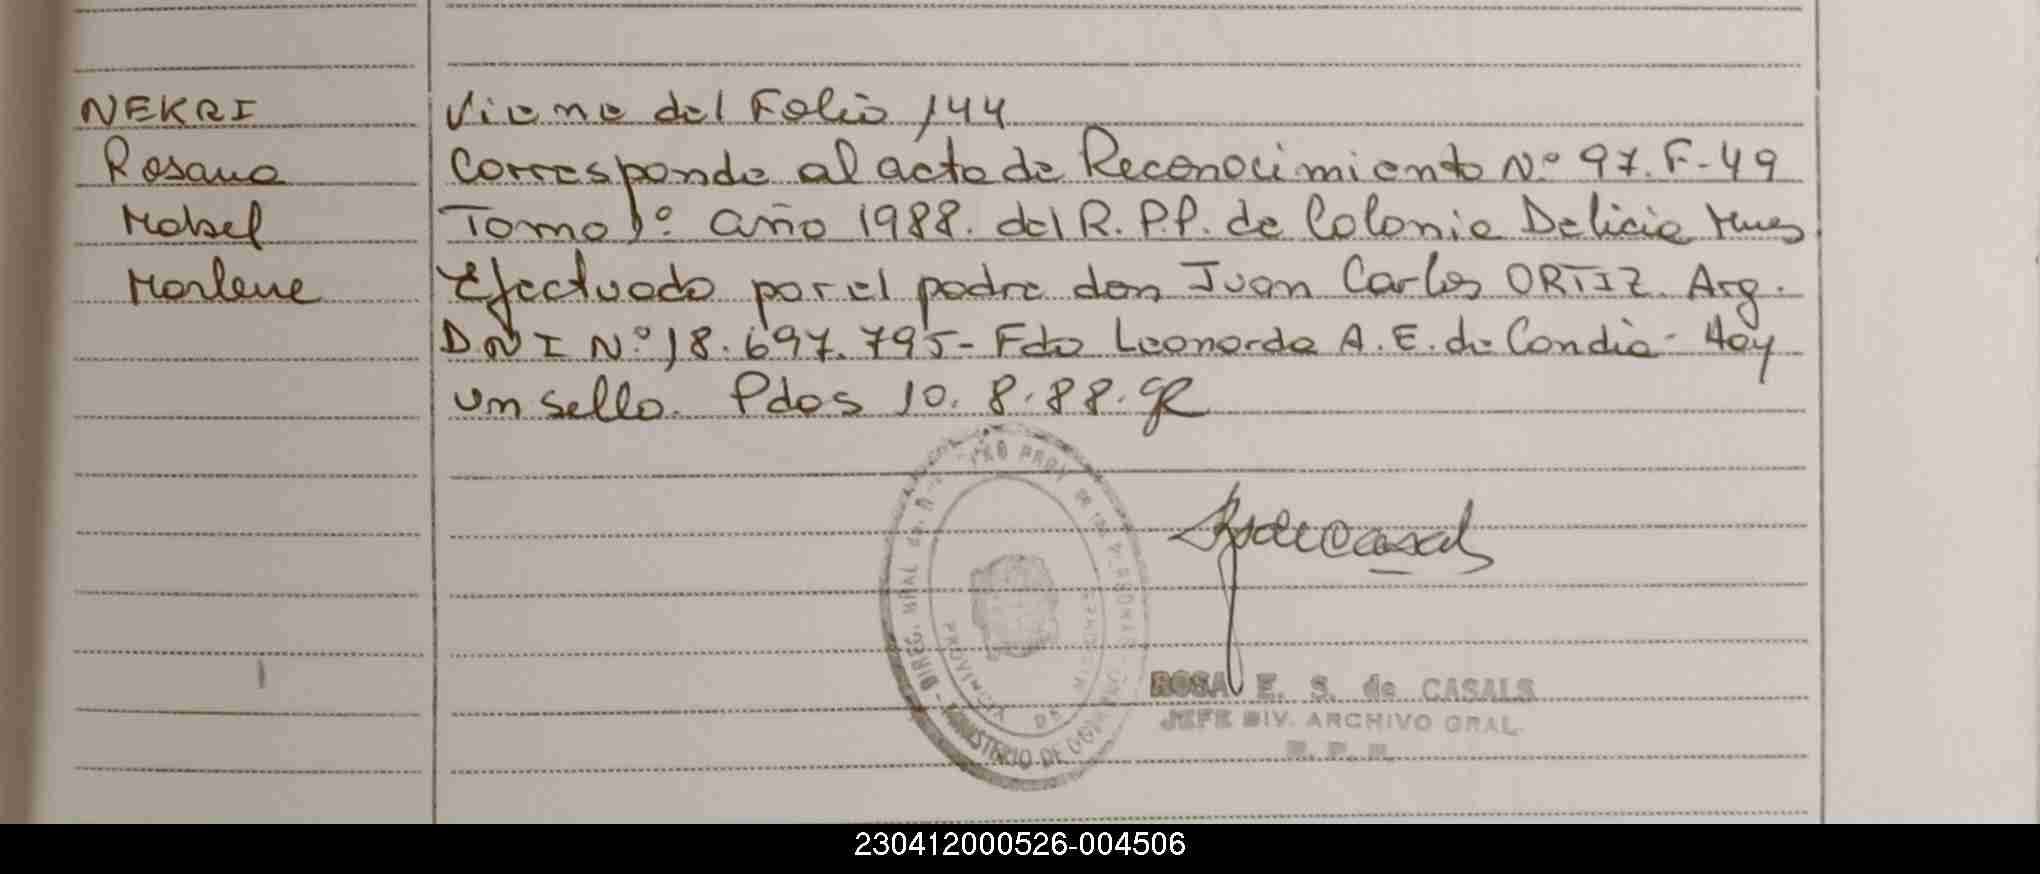 NEKRI
Rosana
Mabel
Marlene
Viene del Folio 144
Corresponde al acta de Reconocimiento Nº 97. F-49
Tomo 1º año 1988. del R.P.P. de Colonia Delicia Mnes
Efectuado por el padre don Juan Carlos ORTIZ. Arg.
DNI Nº 18.697.795- Fdo Leonarda A. E. de Candia- Hay
un sello. Pdas 10. 8. 88.
DIREC. GRAL
PROV. DE LAS PERSONAS
MINISTERIO DE GOBIERNO
PROVINCIA DE MISIONES
ROSA E. S. de CASALS
JEFE DIV. ARCHIVO GRAL.
R. P. P.
230412000526-004506